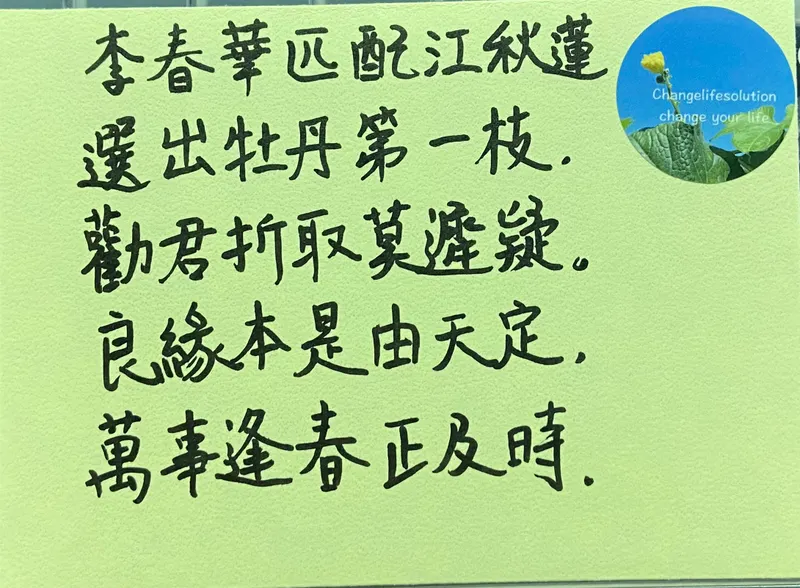 李春華匹配江秋蓮
選出牡丹第一枝.
勸君折取莫遲疑。
良緣本是由天定.
萬事逢春正及時.
Changelifesolution
change your life